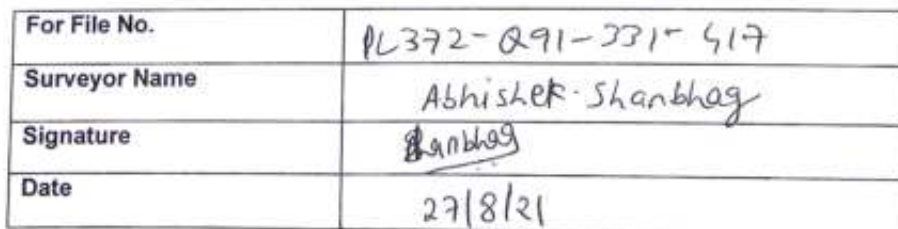 For File No. PL372-Q91-331-417
Surveyor Name Abhishek. Shanbhag
Signature Shanbhag
Date 27/8/21